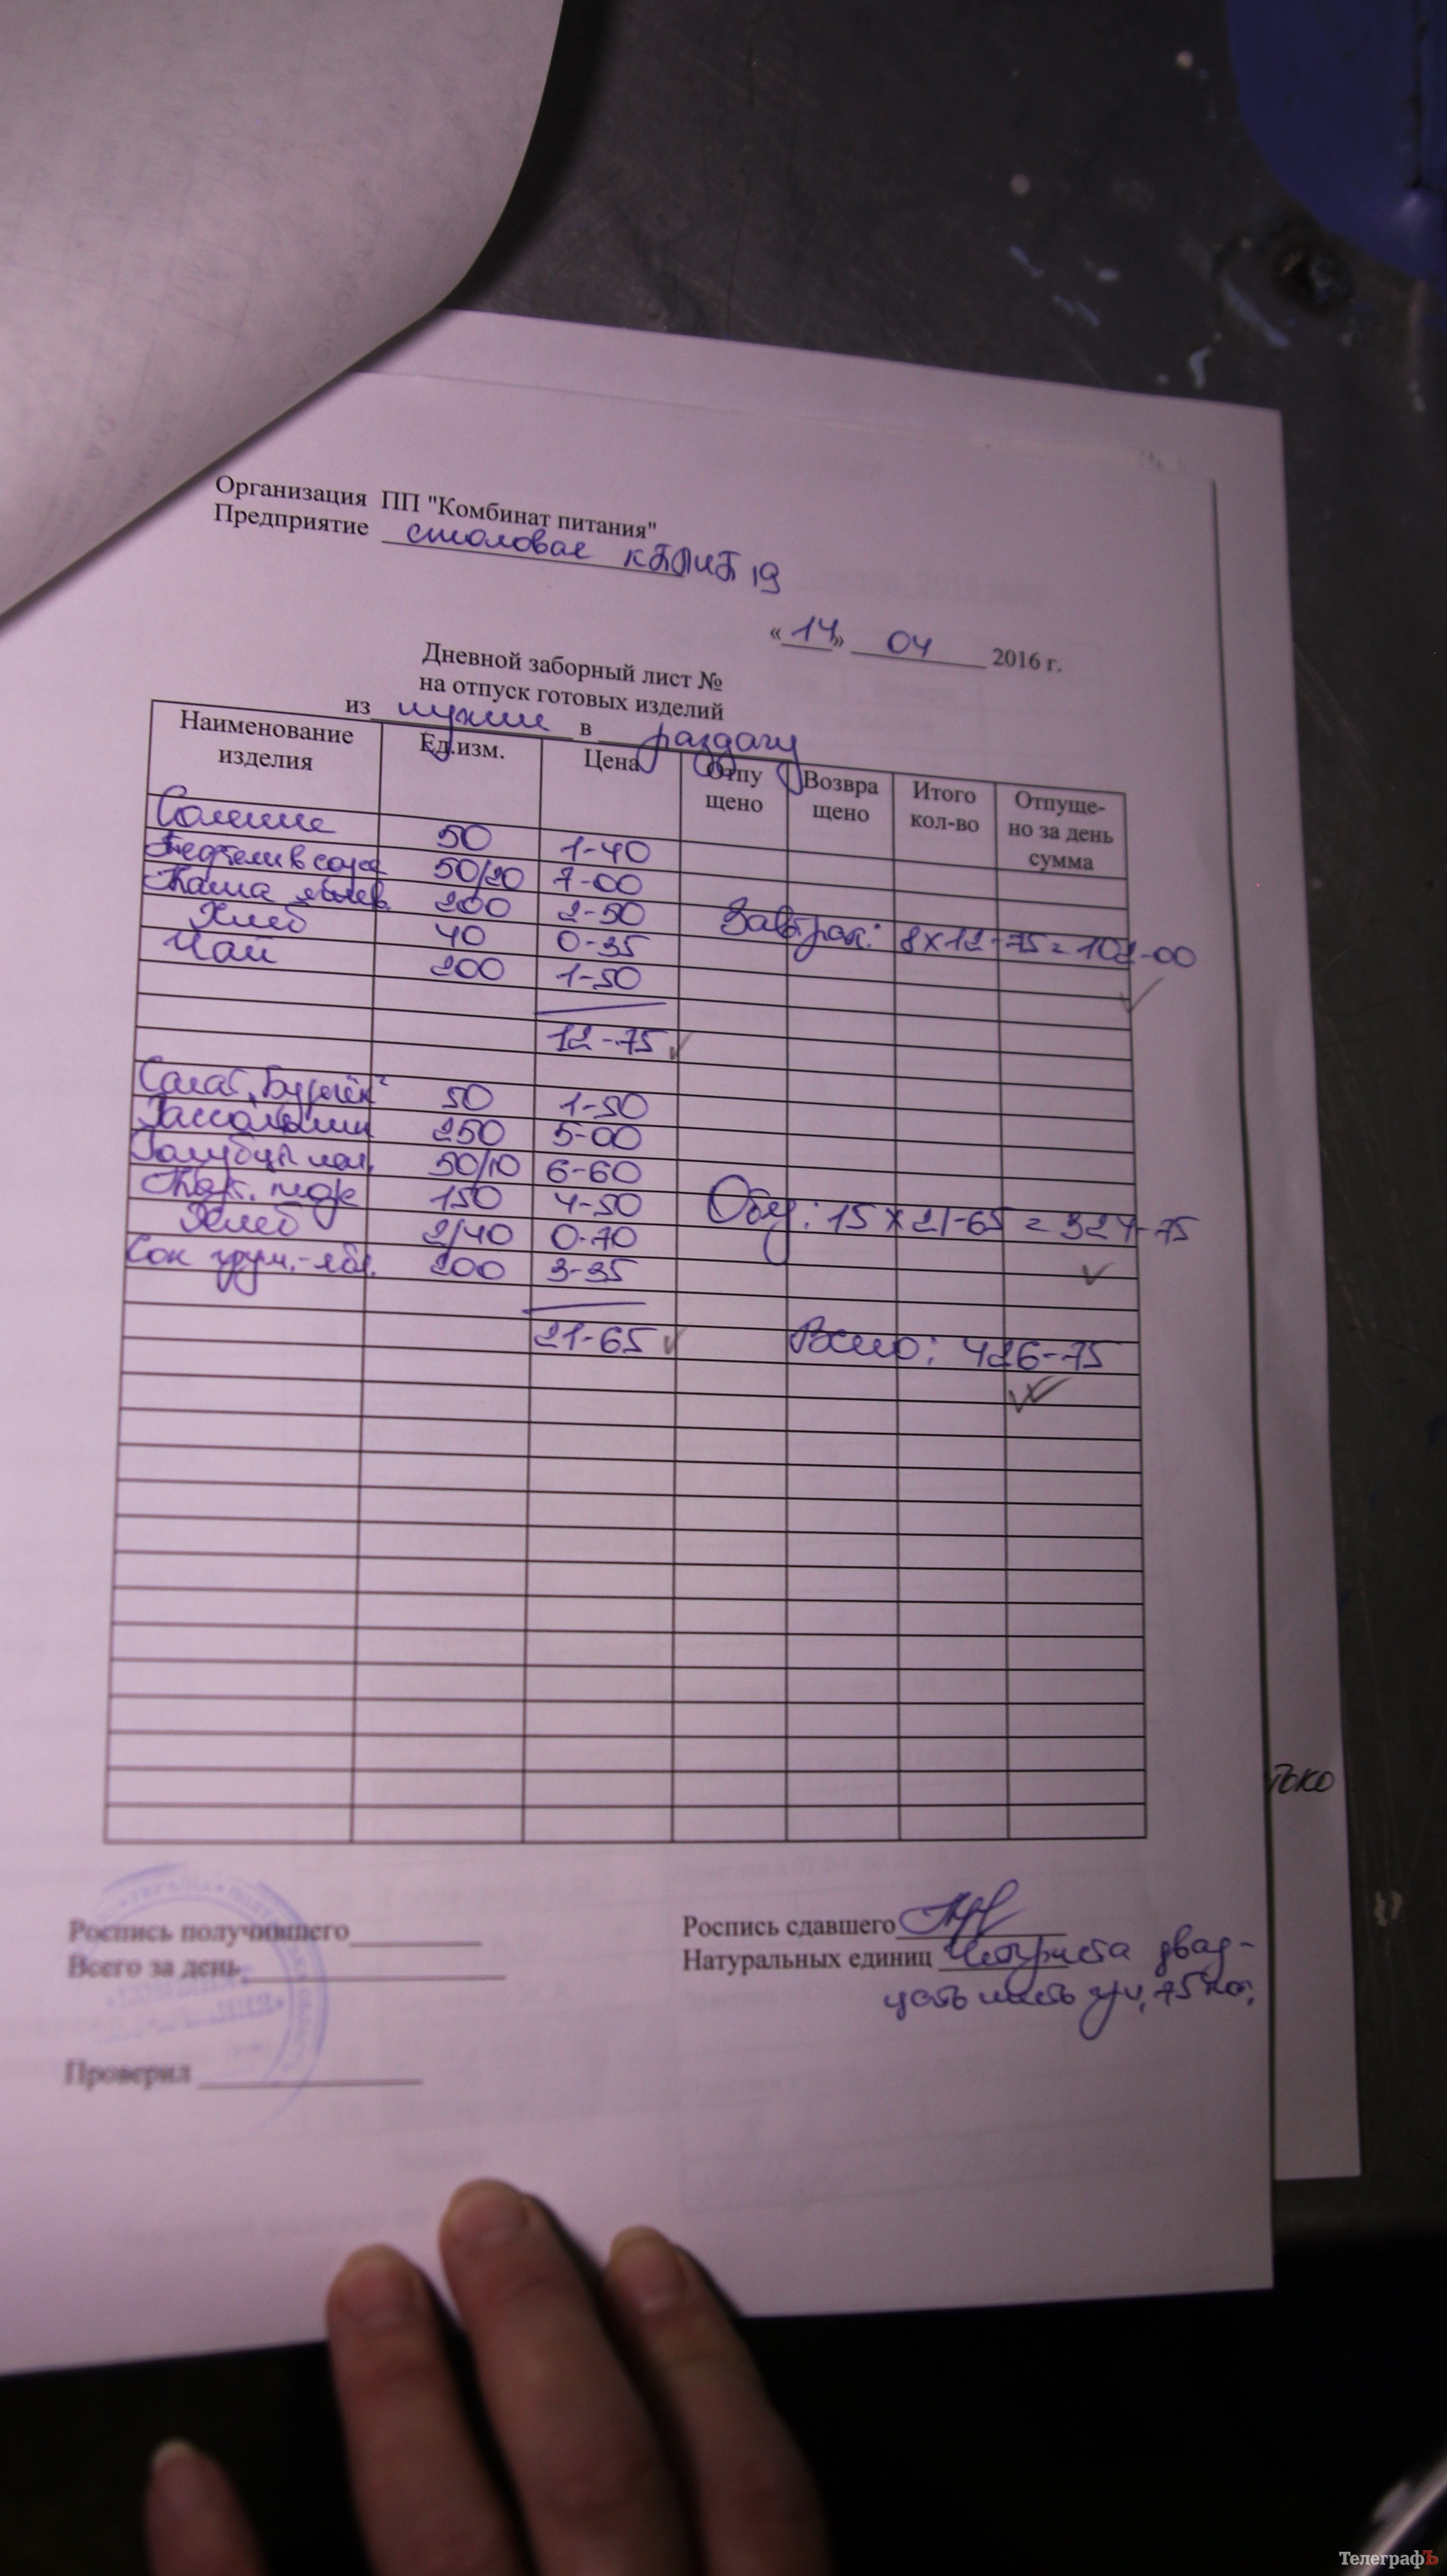 Организация ПП "Комбинат питания"
Предприятие столовая
«14» 04 2016 г.
Дневной заборный лист №
на отпуск готовых изделий
из кухни в раздачу
Наименование изделия Ед.изм. Цена Отпу щено Возвра щено Итого кол-во Отпуще- но за день сумма
Соленые 50 1-40
Тефтели в соусе 50/20 7-00
Каша ячнев. 200 2-50
Хлеб 40 0-35
Завтрак: 8 х 12-75 = 102-00
Чай 200 1-50
12-75
Салат „Бурячок" 50 1-50
Рассольник 250 5-00
Голубцы 50/10 6-60
150 4-50
Обед: 15 х 21-65 = 324-75
Хлеб 2/40 0-70
Сок груш.-ябл. 200 3-35
21-65 Всего: 426-75
токо
Роспись получившего
Роспись сдавшего
Всего за день
Натуральных единиц Четыреста двад-
цать шесть грн, 75 коп.
Проверил
ТелеграфЪ